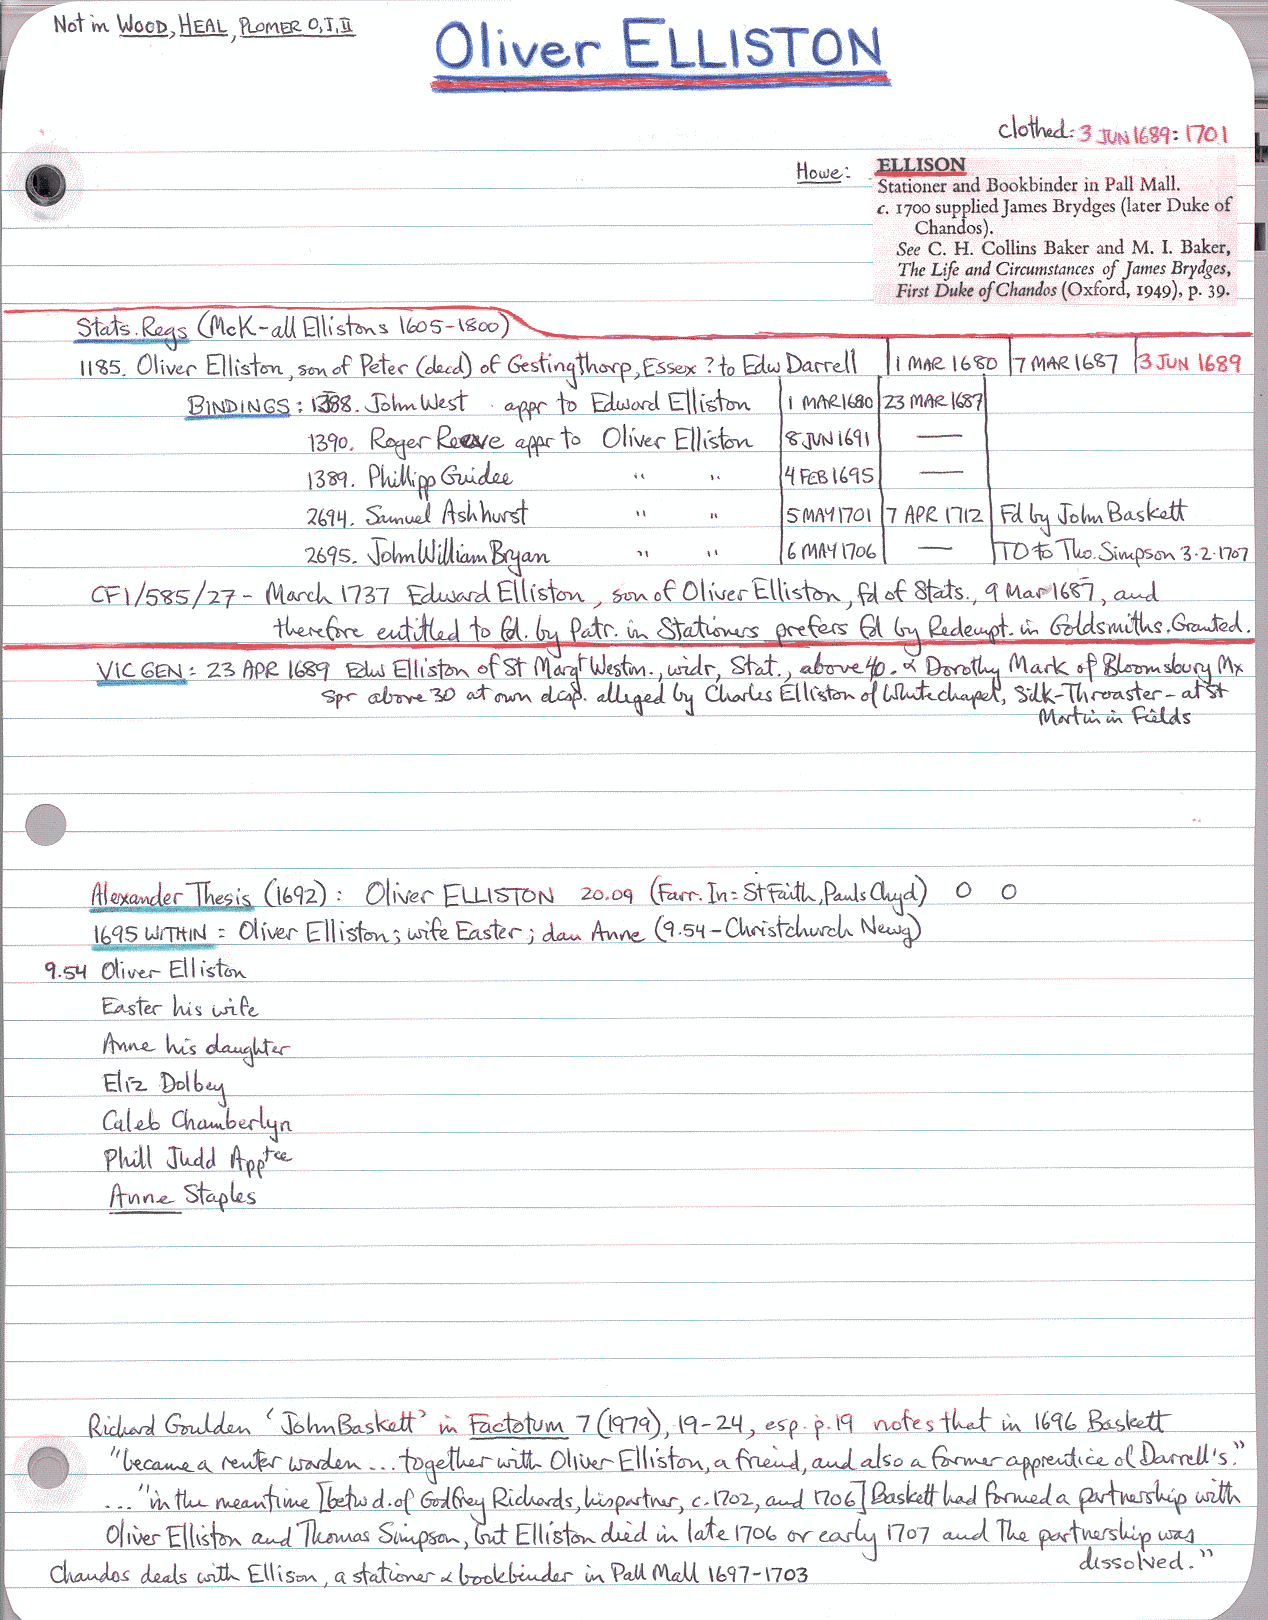 Not in WOOD, HEAL, PLOMER O, I, II
Oliver ELLISTON
clothed: 3 JUN 1689: 1701
Howe: ELLISON
Stationer and Bookbinder in Pall Mall.
c. 1700 supplied James Brydges (later Duke of
Chandos).
See C. H. Collins Baker and M. I. Baker,
The Life and Circumstances of James Brydges,
First Duke of Chandos (Oxford, 1949), p. 39.
Stats. Regs (McK-all Ellistons 1605-1800)
1185. Oliver Elliston, son of Peter (decd) of Gestingthorp, Essex ? to Edw Darrell 1 MAR 1680 7 MAR 1687 3 JUN 1689
BINDINGS: 1388. John West appr to Edward Elliston 1 MAR 1680 23 MAR 1687
1390. Roger Reeve appr to Oliver Elliston 8 JUN 1691 —
1389. Phillipp Guidee " " 4 FEB 1695 —
2694. Samuel Ashhurst " " 5 MAY 1701 7 APR 1712 Fd by John Baskett
2695. John William Bryan " " 6 MAY 1706 — TO to Tho. Simpson 3·2·1707
CF1/585/27 - March 1737 Edward Elliston, son of Oliver Elliston, fd of Stats., 9 Mar 1687, and
therefore entitled to fd. by Patr. in Stationers prefers fd by Redempt. in Goldsmiths. Granted.
VIC GEN: 23 APR 1689 Edw Elliston of St Margt Westm., widr, Stat., above 40. & Dorothy Mark of Bloomsbury Mx
spr above 30 at own dcsp. alleged by Charles Elliston of Whitechapel, Silk-Throaster - at St
Martin in Fields
Alexander Thesis (1692): Oliver ELLISTON 20.09 (Farr. In = St Faith, Pauls Chyd) 0 0
1695 WITHIN = Oliver Elliston; wife Easter; dau Anne (9.54 - Christchurch Newg)
9.54 Oliver Elliston
Easter his wife
Anne his daughter
Eliz Dolbey
Caleb Chamberlyn
Phill Judd Apptce
Anne Staples
Richard Goulden 'John Baskett' in Factotum 7 (1979), 19-24, esp. p.19 notes that in 1696 Baskett
"became a renter warden ... together with Oliver Elliston, a friend, and also a former apprentice of Darrell's."
... "in the meantime [betw d. of Godfrey Richards, his partner, c.1702, and 1706] Baskett had formed a partnership with
Oliver Elliston and Thomas Simpson, but Elliston died in late 1706 or early 1707 and the partnership was
dissolved."
Chandos deals with Ellison, a stationer & bookbinder in Pall Mall 1697-1703